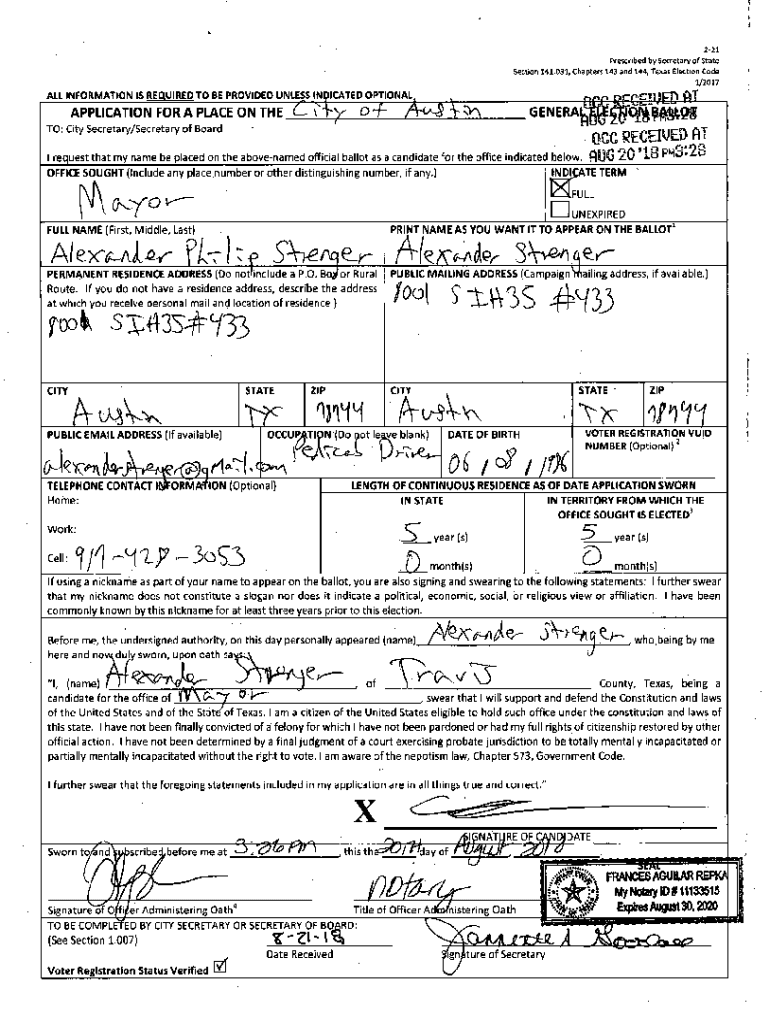 2-21
Prescribed by Secretary of State
Section 141.031, Chapters 143 and 144, Texas Election Code
1/2017
ALL INFORMATION IS REQUIRED TO BE PROVIDED UNLESS INDICATED OPTIONAL
OCC RECEIVED AT
AUG 20 '18 PM3:28
APPLICATION FOR A PLACE ON THE City of Austin GENERAL ELECTION BALLOT
TO: City Secretary/Secretary of Board
OCC RECEIVED AT
I request that my name be placed on the above-named official ballot as a candidate for the office indicated below. AUG 20 '18 PM3:28
OFFICE SOUGHT (Include any place number or other distinguishing number, if any.) INDICATE TERM
Mayor
FULL
UNEXPIRED
FULL NAME (First, Middle, Last) PRINT NAME AS YOU WANT IT TO APPEAR ON THE BALLOT1
Alexander Philip Strenger Alexander Strenger
PERMANENT RESIDENCE ADDRESS (Do not include a P.O. Box or Rural PUBLIC MAILING ADDRESS (Campaign mailing address, if available.)
Route. If you do not have a residence address, describe the address
at which you receive personal mail and location of residence )
8001 SIH35 #433
8001 SIH35 #433
CITY STATE ZIP CITY STATE ZIP
Austin TX 78744 Austin TX 78744
PUBLIC EMAIL ADDRESS (If available) OCCUPATION (Do not leave blank) DATE OF BIRTH VOTER REGISTRATION VUID
NUMBER (Optional) 2
Pedicab Driver
06 / 08 / 1986
TELEPHONE CONTACT INFORMATION (Optional) LENGTH OF CONTINUOUS RESIDENCE AS OF DATE APPLICATION SWORN
Home: IN STATE IN TERRITORY FROM WHICH THE
OFFICE SOUGHT IS ELECTED3
Work: 5 year (s) 5 year (s)
Cell: 0 month(s) 0 month(s)
If using a nickname as part of your name to appear on the ballot, you are also signing and swearing to the following statements: I further swear
that my nickname does not constitute a slogan nor does it indicate a political, economic, social, or religious view or affiliation. I have been
commonly known by this nickname for at least three years prior to this election.
Before me, the undersigned authority, on this day personally appeared (name) Alexander Strenger, who being by me
here and now duly sworn, upon oath says:
"I, (name) Alexander Strenger of Travis County, Texas, being a
candidate for the office of Mayor, swear that I will support and defend the Constitution and laws
of the United States and of the State of Texas. I am a citizen of the United States eligible to hold such office under the constitution and laws of
this state. I have not been finally convicted of a felony for which I have not been pardoned or had my full rights of citizenship restored by other
official action. I have not been determined by a final judgment of a court exercising probate jurisdiction to be totally mentally incapacitated or
partially mentally incapacitated without the right to vote. I am aware of the nepotism law, Chapter 573, Government Code.
I further swear that the foregoing statements included in my application are in all things true and correct."
X
SIGNATURE OF CANDIDATE
Sworn to and subscribed before me at 3:26 PM, this the 20th day of August, 2018
SEAL
FRANCES AGUILAR REPKA
My Notary ID # 11133515
Expires August 30, 2020
notary
Signature of Officer Administering Oath4 Title of Officer Administering Oath
TO BE COMPLETED BY CITY SECRETARY OR SECRETARY OF BOARD:
(See Section 1.007) 8-21-18
Date Received Signature of Secretary
Voter Registration Status Verified